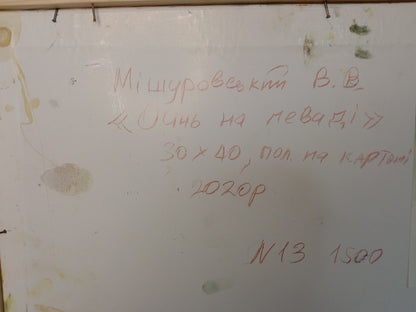 Мішуровський В.В.
« на леваді»
30х40, пол. на картоні
2020р
N13 1500